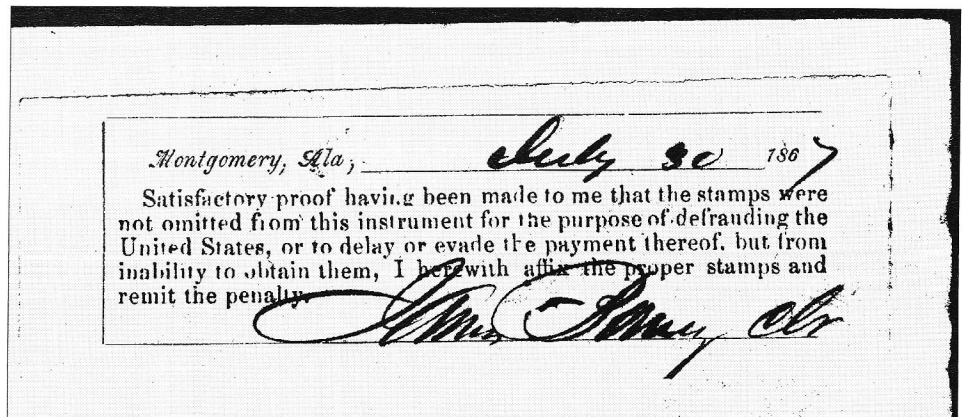 Montgomery, Ala, July 30 1867
Satisfactory proof having been made to me that the stamps were
not omitted from this instrument for the purpose of defrauding the
United States, or to delay or evade the payment thereof, but from
inability to obtain them, I herewith affix the proper stamps and
remit the penalty.